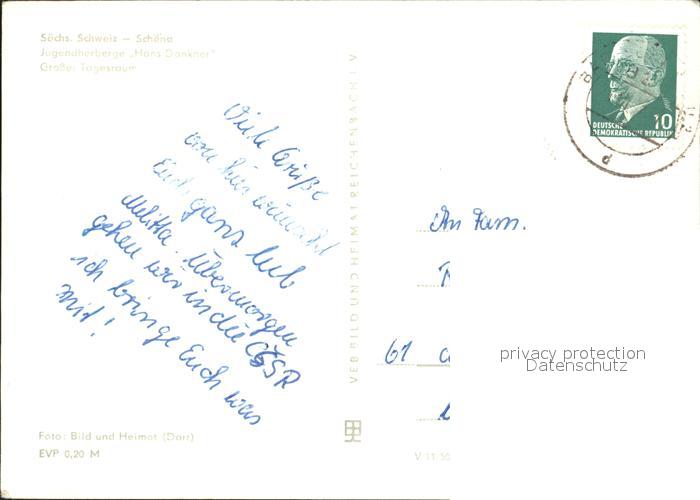 Sächs. Schweiz – Schöna
Jugendherberge „Hans Dankner"
Großer Tagesraum
Viele Grüße
von hier wünscht
Euch ganz lieb
Melitta. Übermorgen
gehen wir in die ČSSR
ich bringe Euch was
mit!
VEB BILD UND HEIMAT REICHENBACH I. V.
DEUTSCHE
DEMOKRATISCHE REPUBLIK
10
An Fam.
61
privacy protection
Datenschutz
Foto: Bild und Heimat (Darr)
EVP 0,20 M
V 11 50